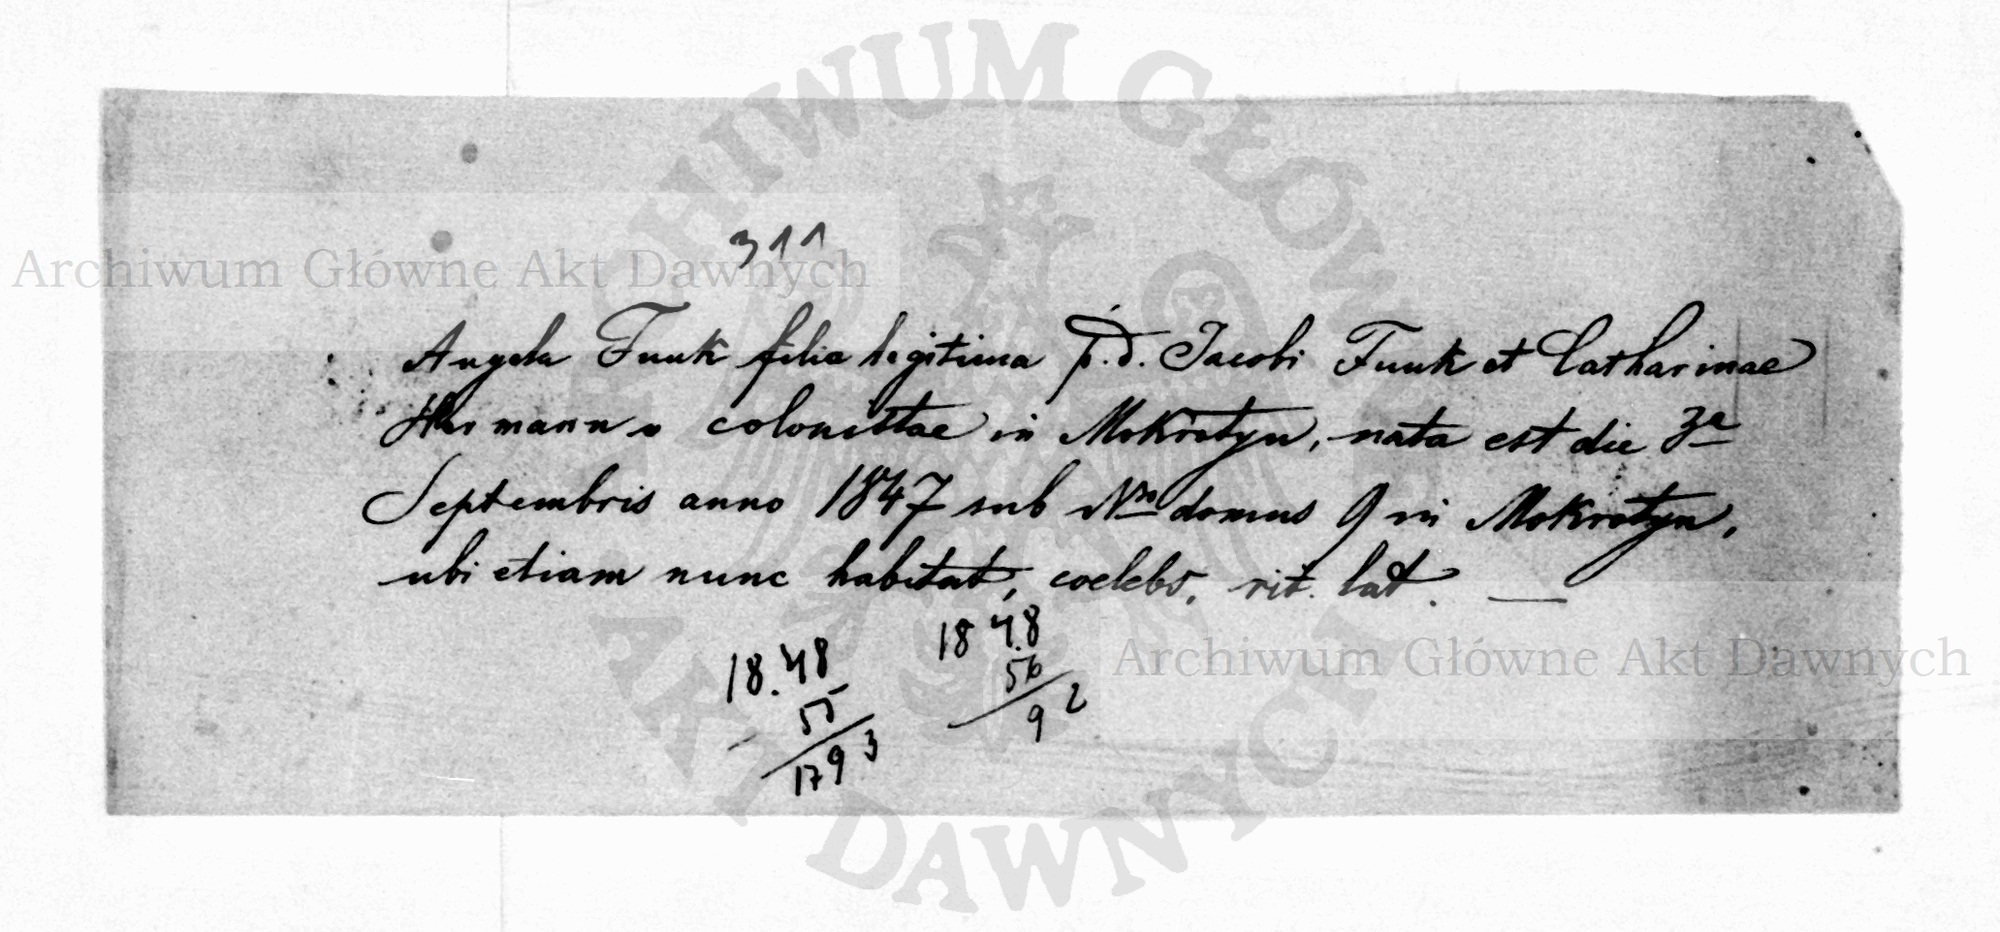 ARCHIWUM GŁÓWNE
Archiwum Główne Akt Dawnych
311
Angela Funk filia legitima p.d. Jacobi Funk et Catharinae
Hermann colonistae in Mokrotyn, nata est die 3a
Septembris anno 1847 sub Nro domus 9 in Mokrotyn,
ubi etiam nunc habitat, coelebs, rit. lat. —
18.48
55
1793
1848
56
92
Archiwum Główne Akt Dawnych
AKT DAWNYCH